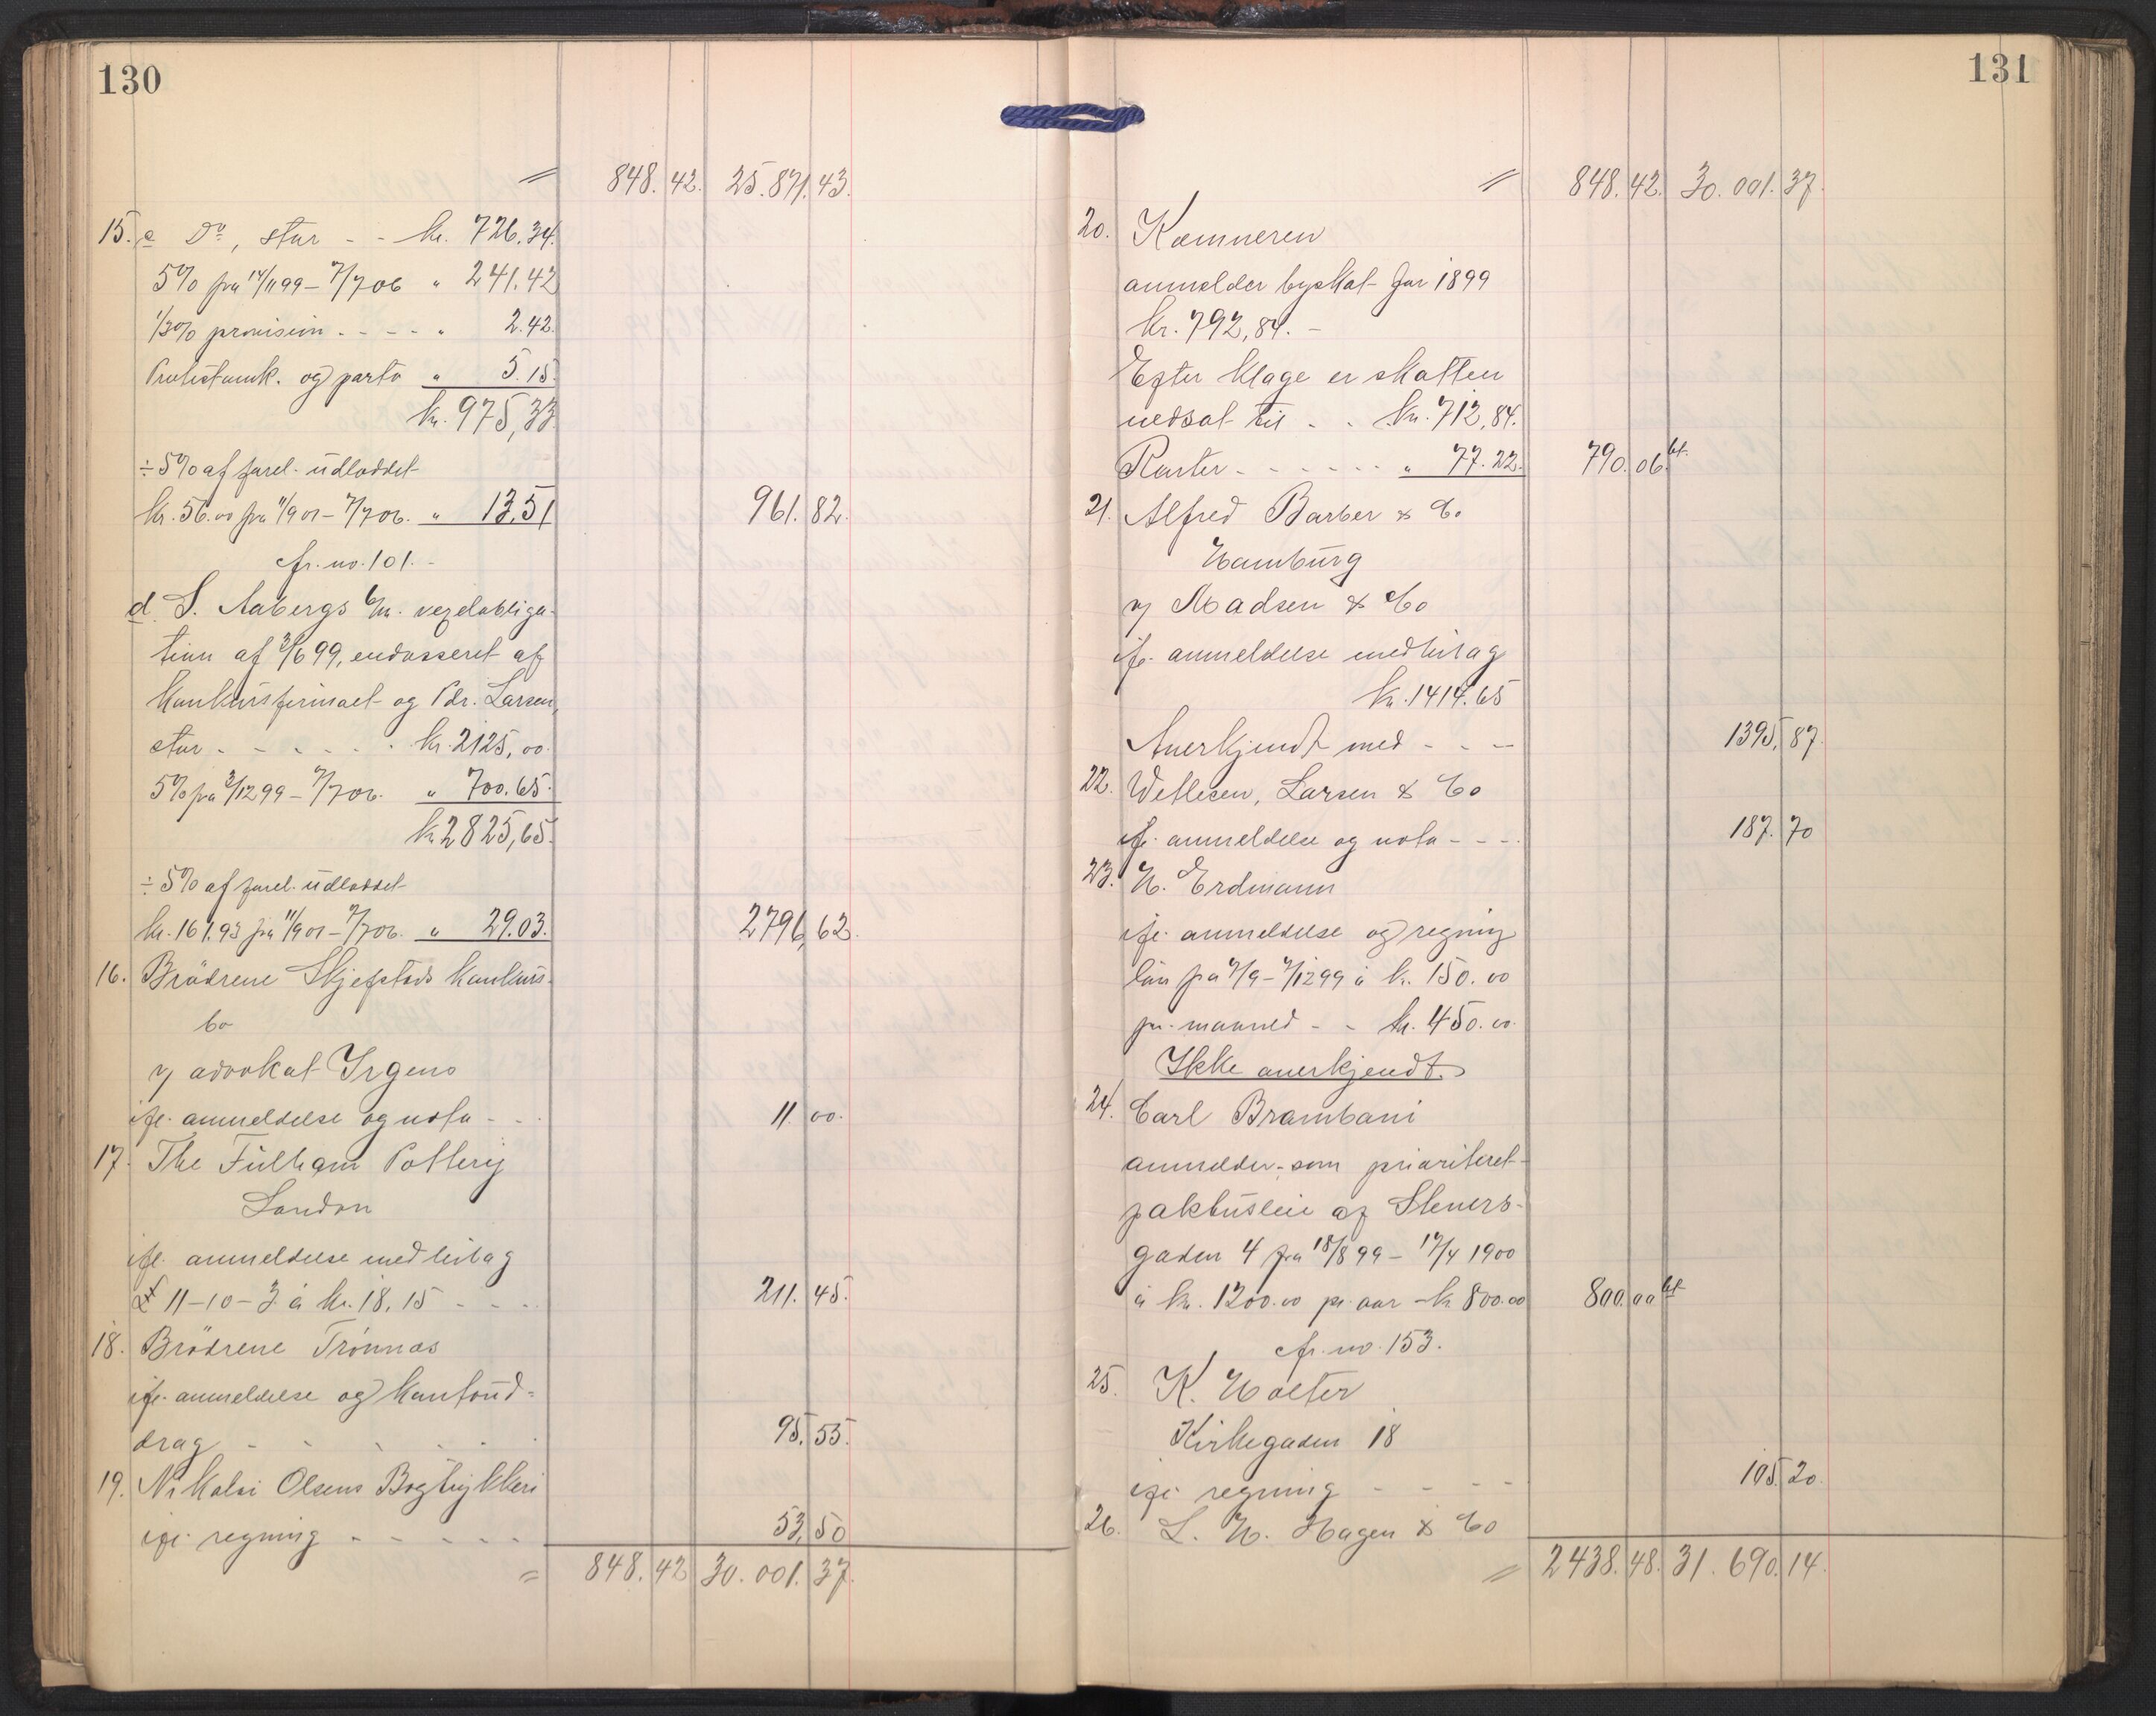 130
= 848.42. 25.871.43.
15. c Do, stor - - kr. 726.34.
5% fra 14/11 99 - 7/7 06 " 241.42
1/3% provision - - - - " 2.42.
Protestomk. og porto " 5.15.
kr. 975,33.
÷ 5% af forel. udloddet
kr. 56.00 fra 11/9 01 - 7/7 06. " 13,51 961.82.
cfr. no. 101. -
d. S. Aabergs b/m. vexelobliga-
tion af 3/6 99, endosseret af
konkursfirmaet og Pdr. Larsen,
stor - - - - - - kr. 2125,00.
5% fra 3/12 99 - 7/7 06. " 700.65.
kr. 2825,65.
÷ 5% af forel. udloddet
kr. 161.93 fra 11/9 01 - 7/7 06. " 29.03. 2796,62.
16. Brödrene Skjefstads konkurs-
bo
v/ advokat Irgens
ifl. anmeldelse og nota - - 11.00.
17. The Fulham Pottery
London
ifl. anmeldelse med bilag
£ 11-10-3 à kr. 18.15 - - - 211.45.
18. Brödrene Trönnæs
ifl. anmeldelse og kontoud-
drag - - - - - - 95.55.
19. Nikolai Olsens Bogtrykkeri
ifl. regning - - - - - 53,50
= 848.42 30.001.37.
131
= 848.42. 30.001.37.
20. Kæmneren
anmelder byskat for 1899
kr. 792,84. -
Efter klage er skatten
nedsat til - - kr. 712,84.
Renter - - - - - - " 77.22. 790.06. bt.
21. Alfred Barber & Co
Hamburg
v/ Madsen & Co
ifl. anmeldelse med bilag
kr. 1414.65
Anerkjendt med - - - 1395,87.
22. Wetlesen, Larsen & Co
ifl. anmeldelse og nota - - - 187.70
23. H. Erdmann
ifl. anmeldelse og regning
lön fra 7/9 - 7/12 99 à kr. 150.00
pr. maaned - - kr. 450.00.
Ikke anerkjendt.
24. Carl Brambani
anmelder - som prioriteret -
pakhusleie af Steners-
gaden 4 fra 18/8 99 - 17/4 1900
à kr. 1200.00 pr. aar - kr. 800.00 800.00 bt
cfr. no. 153.
25. K. Holter
Kirkegaden 18
ifl. regning - - - - 105.20.
26. L. H. Hagen & Co
= 2438.48. 31.690.14.